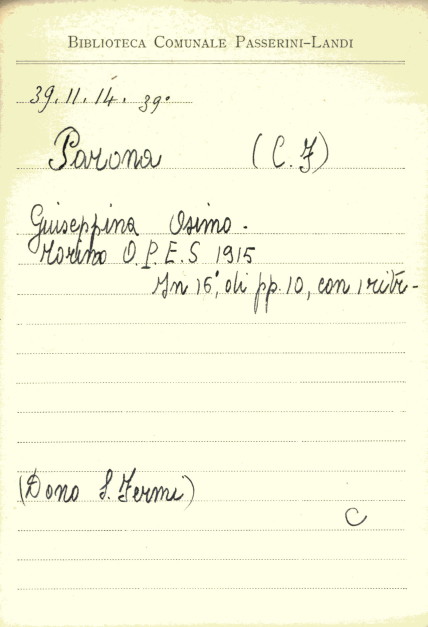 BIBLIOTECA COMUNALE PASSERINI-LANDI
39. 11. 14. 39°
Parona (C. F)
Giuseppina Osimo.
Torino O.P.E.S 1915
In 16°, di pp. 10, con 1 ritr-
(Dono S. Fermi)
C